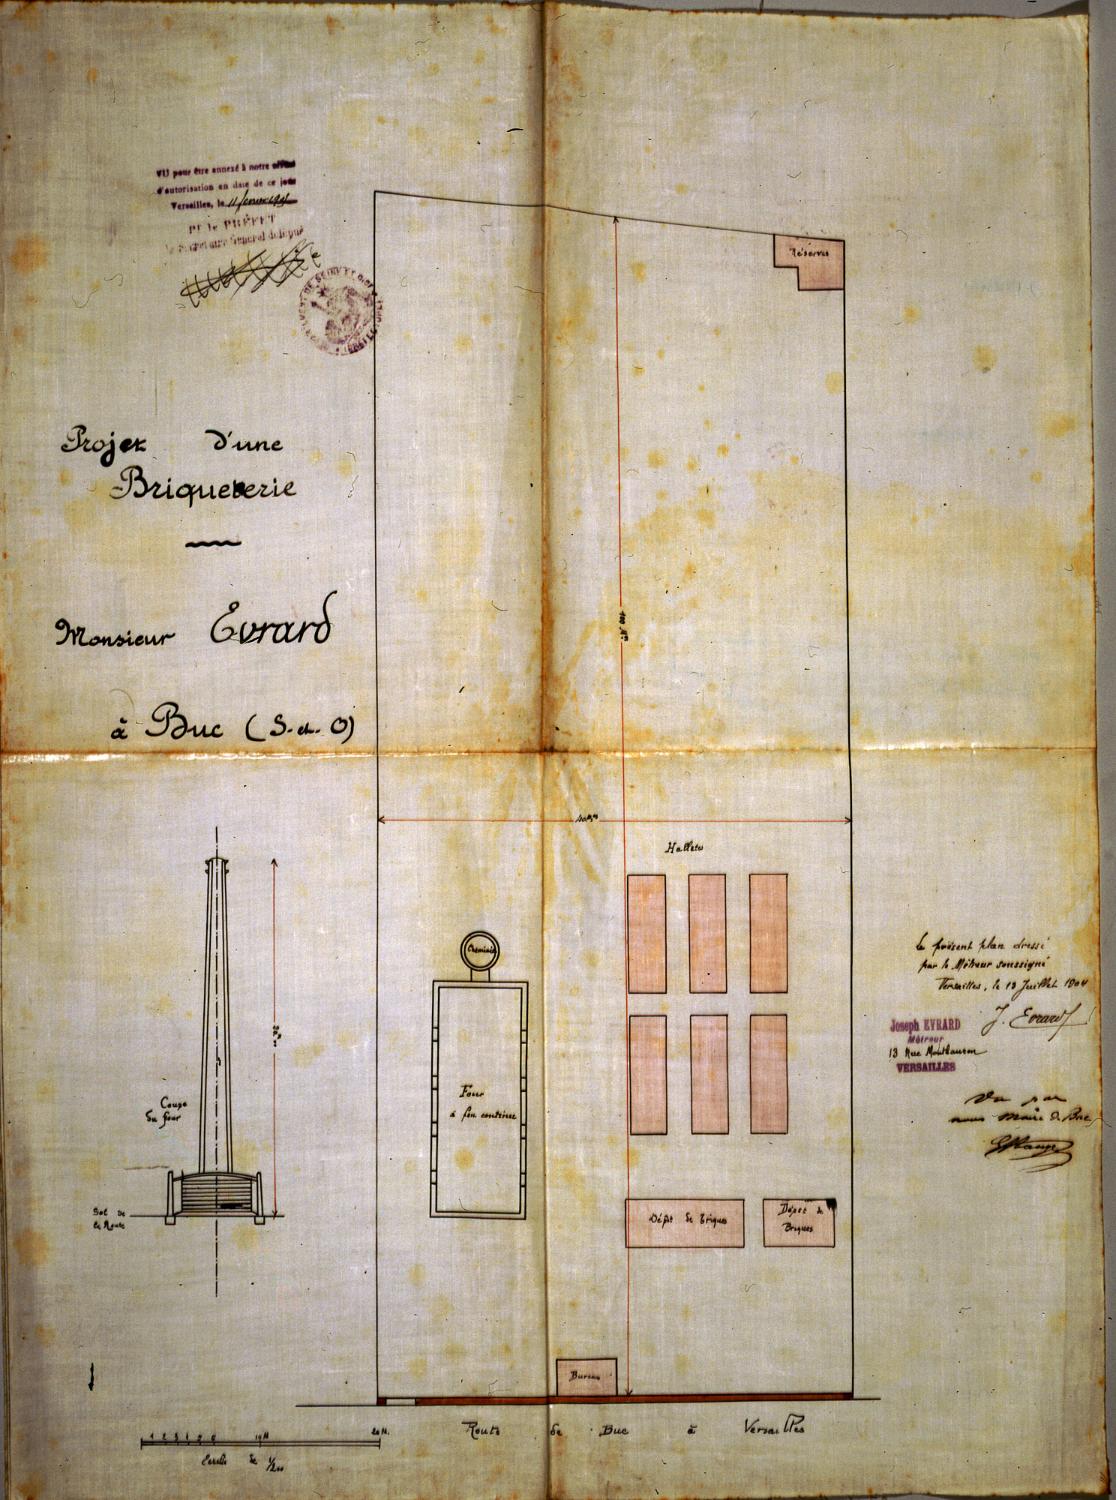 VU pour être annexé à notre arrêté
d'autorisation en date de ce jour
Versailles, le 11
Pr le PRÉFET
Le Secrétaire Général délégué
Réserves
Projet d'une
Briqueterie
Monsieur Evrard
à Buc (S. et. O)
Hallettes
Cheminée
Four
à feu continu
Coupe
du four
Sol de
la Route
Dépôt de Briques
Dépôt de
Briques
Bureau
Route de Buc à Versailles
10 M
20 M.
Echelle de
Le présent plan dressé
par le Métreur soussigné
Versailles, le 13 Juillet 1904
J. Evrard
Joseph EVRARD
Métreur
13 Rue Montbauron
VERSAILLES
Vu par
nous Maire de Buc